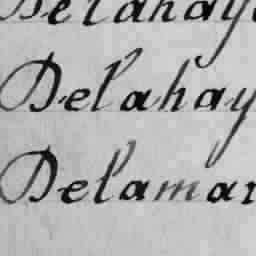 Delahay
Delahay
Delamar